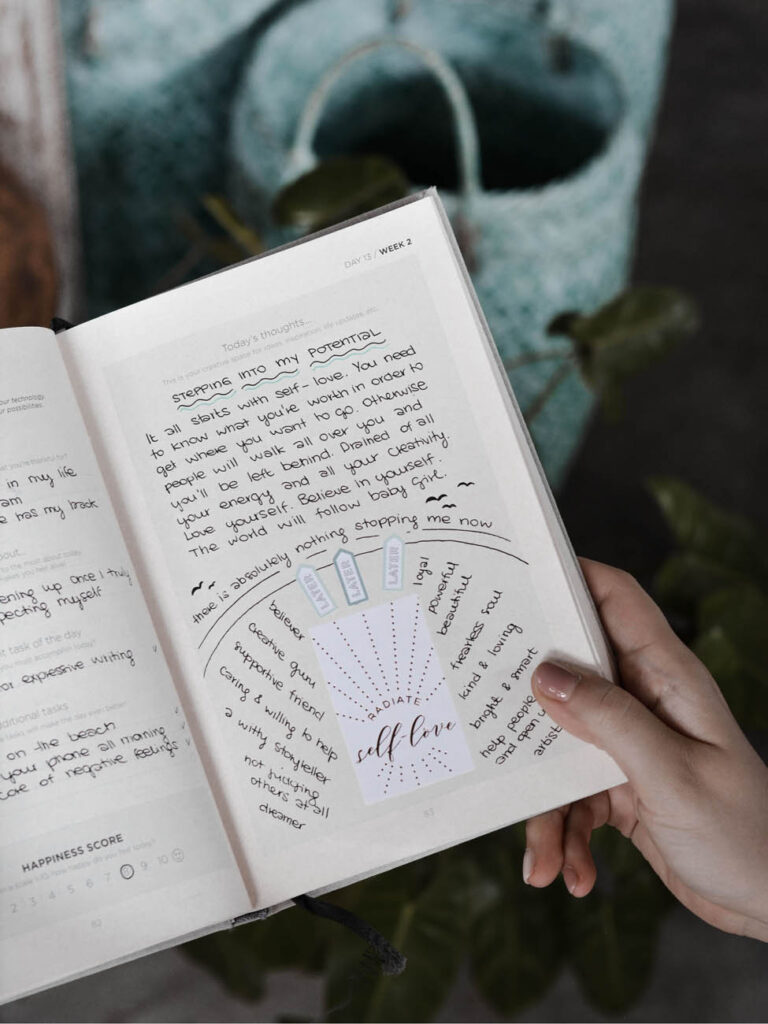 our technology
our possibilities.
what you're thankful for?
in my life
am
e has my back
bout...
to the moon about today
makes you feel alive!
ening up once I truly
pecting myself
t task of the day
you must accomplish today?
or expressive writing
ditional tasks
tasks will make the day even better
on the beach
your phone all morning
care of negative feelings
HAPPINESS SCORE
how do you feel today?
2 3 4 5 6 7 8 9 10
82
DAY 13 / WEEK 2
Today's thoughts...
This is your creative space for ideas, inspiration, life updates, etc.
STEPPING INTO MY POTENTIAL
It all starts with self-love. You need
to know what you're worth in order to
get where you want to go. Otherwise
people will walk all over you and
you'll be left behind. Drained of all
your energy and all your creativity.
Love yourself. Believe in yourself.
The world will follow baby girl.
there is absolutely nothing stopping me now
LATER
LATER
LATER
believer
creative guru
supportive friend
caring & willing to help
a witty storyteller
not judging
others at all
dreamer
RADIATE
self-love
loyal
powerful
beautiful
fearless soul
kind & loving
bright & smart
help people
and open u
artist
83